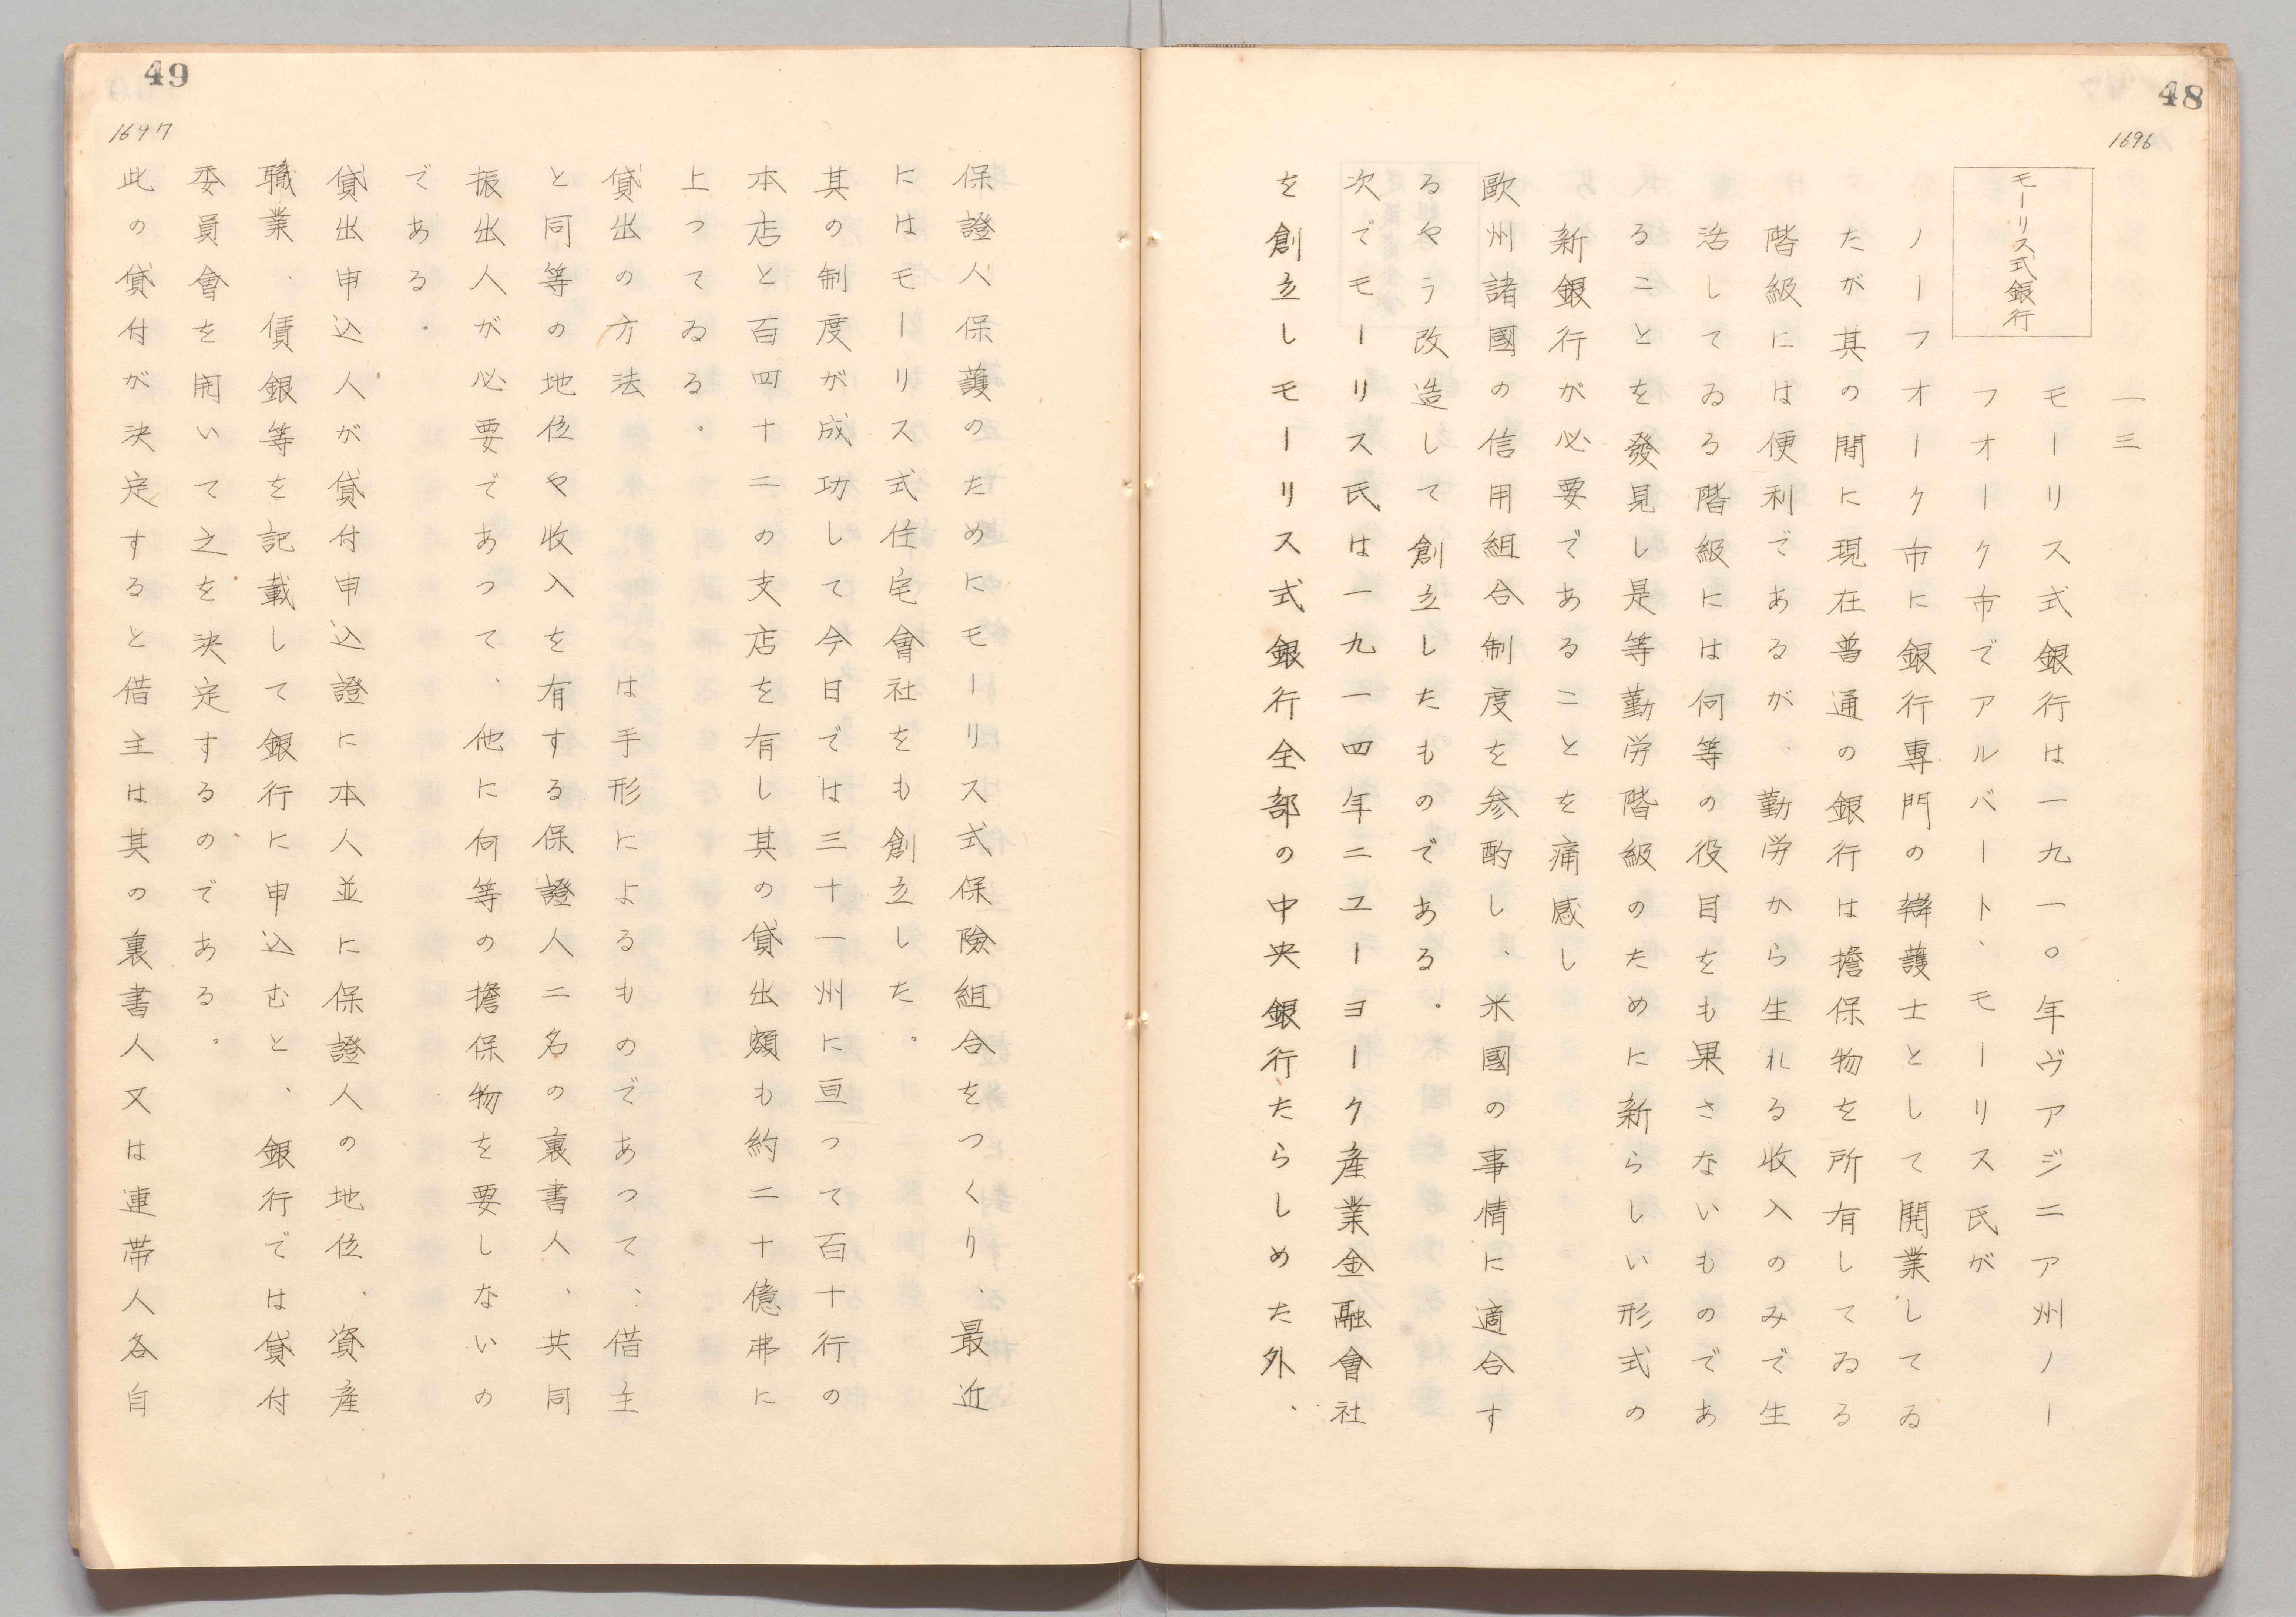 48
1696
一三
モーリス式銀行
モーリス式銀行は一九一〇年ヴアジニア州ノー
フオーク市でアルバート、モーリス氏が
ノーフオーク市に銀行專門の辯護士として開業してゐ
たが其の間に現在普通の銀行は擔保物を所有してゐる
階級には便利であるが、勤労から生れる收入のみで生
活してゐる階級には何等の役目をも果さないものであ
ることを發見し是等勤労階級のために新らしい形式の
新銀行が必要であることを痛感し
歐州諸國の信用組合制度を参酌し、米國の事情に適合す
るやう改造して創立したものである。
次でモーリス氏は一九一四年ニユーヨーク産業金融會社
を創立しモーリス式銀行全部の中央銀行たらしめた外、
49
1697
保證人保護のためにモーリス式保險組合をつくり、最近
にはモーリス式住宅會社をも創立した。
其の制度が成功して今日では三十一州に亘つて百十行の
本店と百四十二の支店を有し其の貸出額も約二十億弗に
上つてゐる。
貸出の方法 は手形によるものであつて、借主
と同等の地位や收入を有する保證人二名の裏書人、共同
振出人が必要であつて、他に何等の擔保物を要しないの
である。
貸出申込人が貸付申込證に本人並に保證人の地位、資産
職業、債銀等を記載して銀行に申込むと、銀行では貸付
委員會を開いて之を決定するのである。
此の貸付が決定すると借主は其の裏書人又は連帯人各自